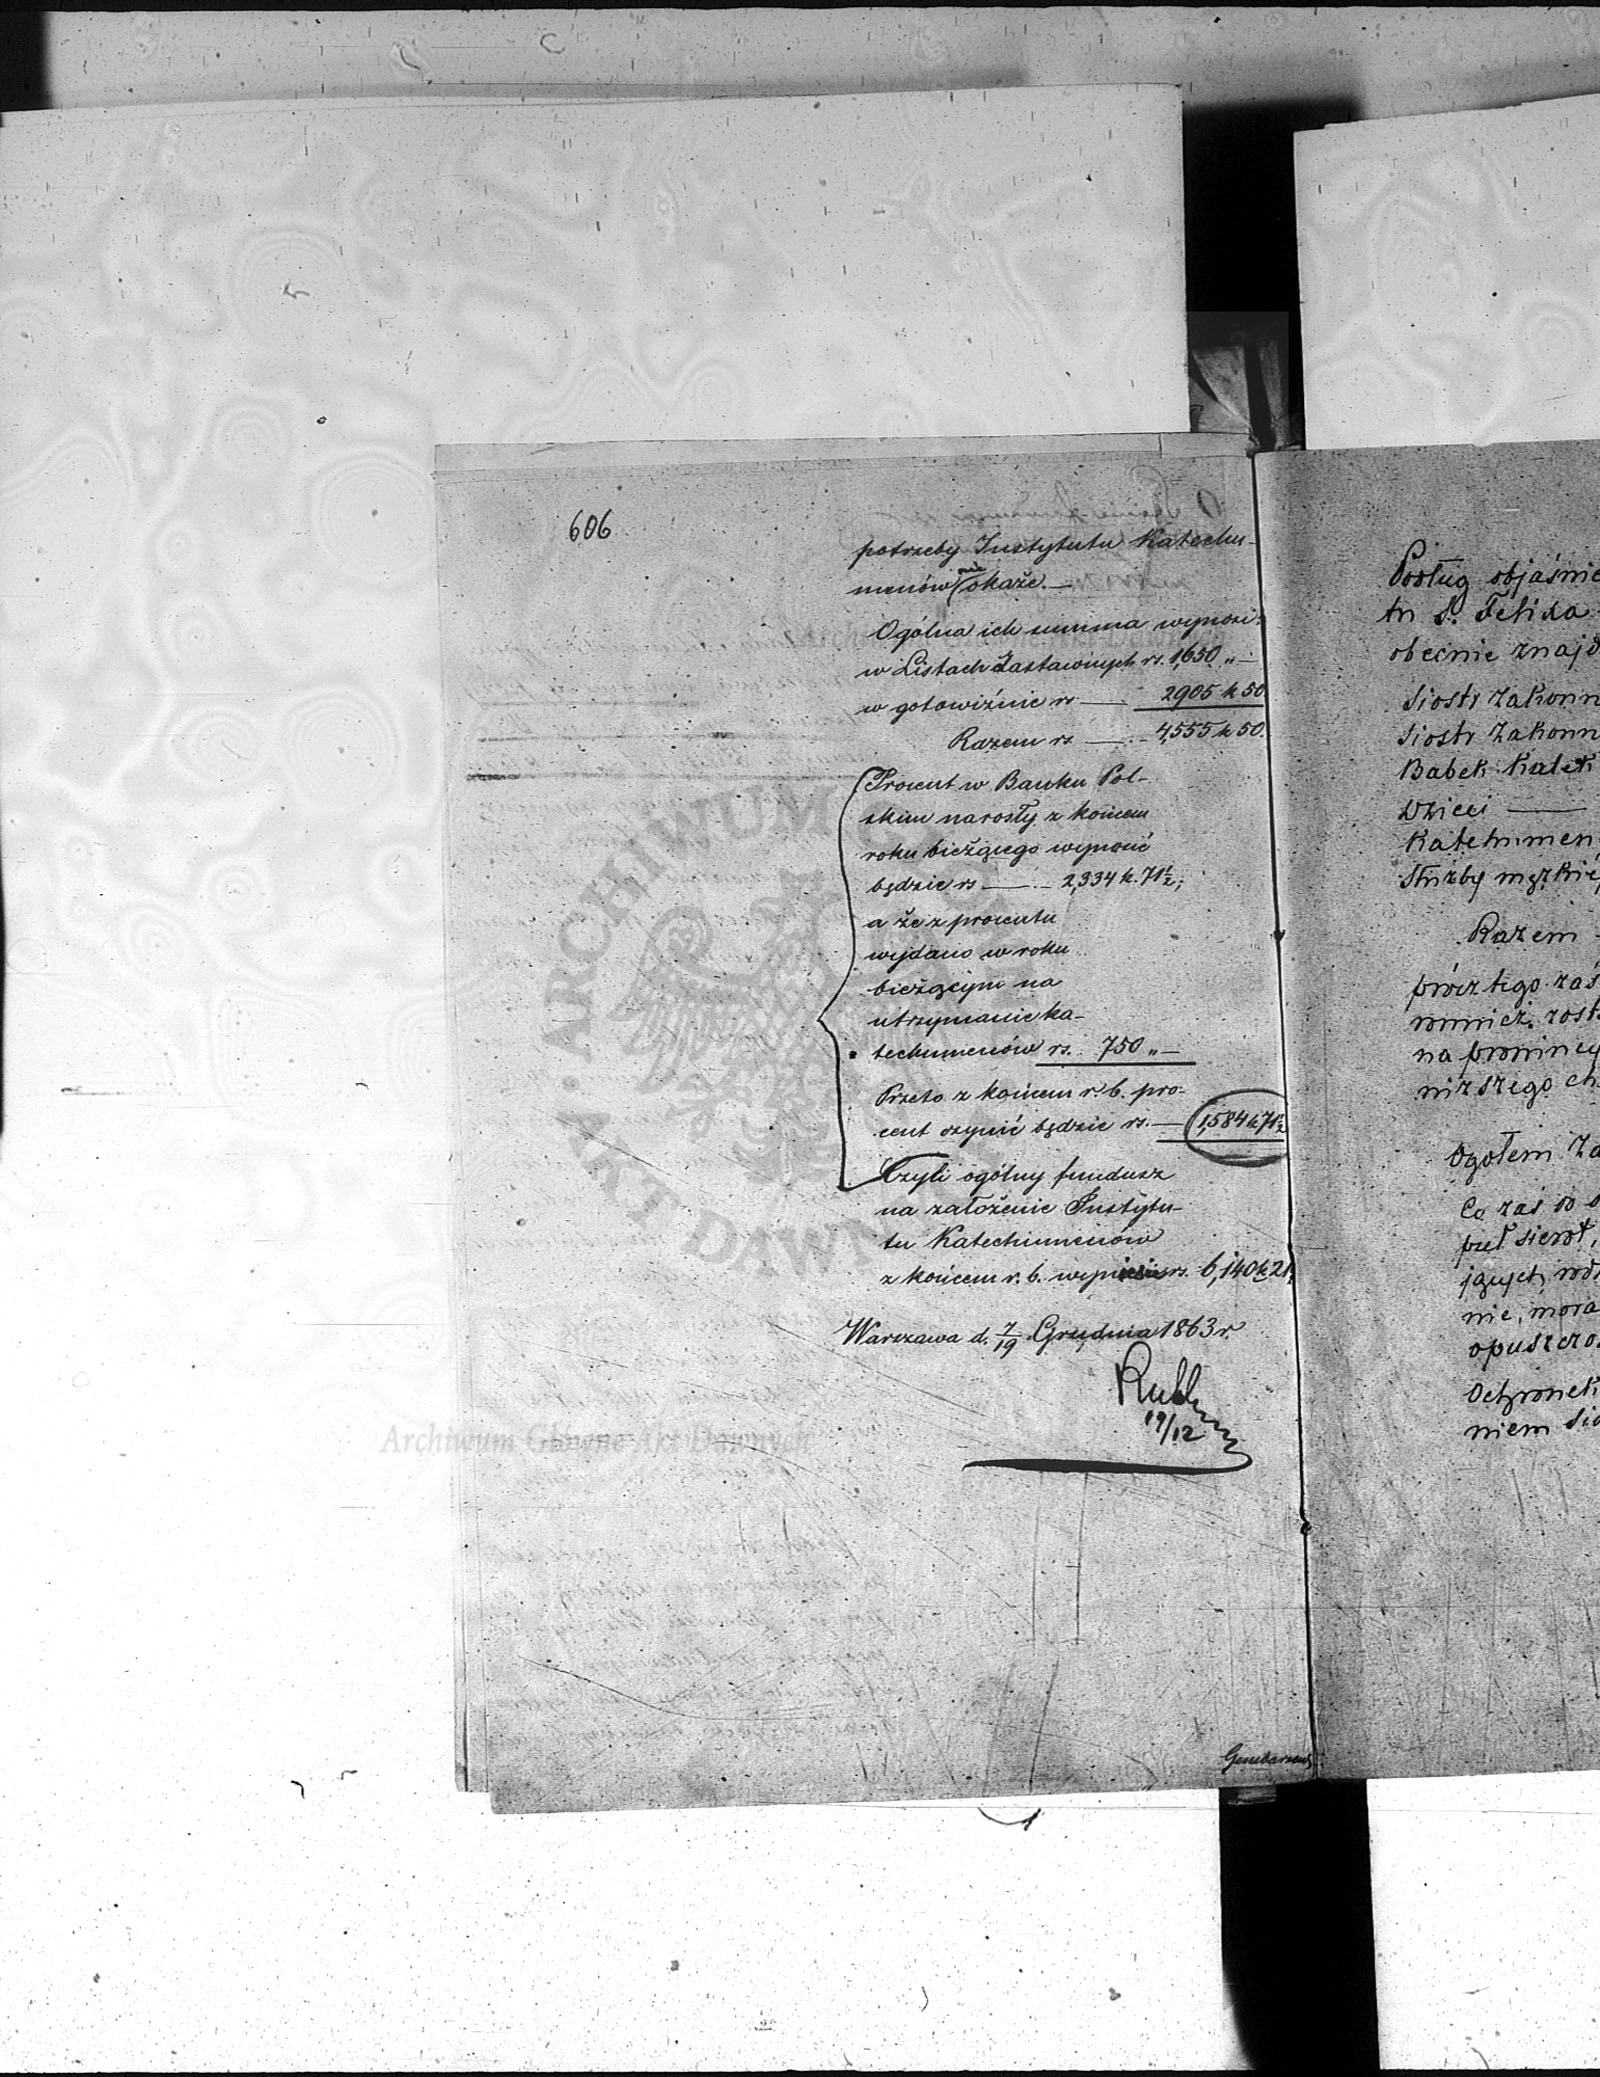 606
potrzeby Instytutu Katechu-
menów nie okaże. —
Ogólna ich summa wynosi:
w Listach Zastawnych rs. 1,650 „ —
w gotowiźnie rs — 2905 k 50.
Razem rs — 4,555 k 50.
Procent w Banku Pol-
skim narosły z końcem
roku bieżącego wynosić
będzie rs — 2,334 k. 71½;
a że z procentu
wydano w roku
bieżącym na
utrzymanie ka-
techumenów rs. 750 „ —
Przeto z końcem r. b. pro-
cent czynić będzie rs. — 1,584 k 71½
Czyli ogólny fundusz
na założenie Instytu-
tu Katechumenów
z końcem r. b. wyniesie rs. 6,140 k 21
Warszawa d. 7/19 Grudnia 1863 r.
19/12
Podług objaśnie
tu S. Felixa
obecnie znajd
Siostr Zakonn
Siostr Zakonn
Babek Katek
Dzieci —
Katechumen
Służby męzkiéj
Razem -
prócz tego zaś
również zost
na prowincy
niższego ch
Ogołem Za
Co zaś do o
put sierot,
jących, rod
nie, mora
opuszczo
Ochronek
niem Sio
ARCHIWUM
AKT DAWN
Archiwum Główne Akt Dawnych